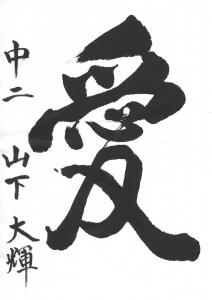 愛
中二 山下大輝